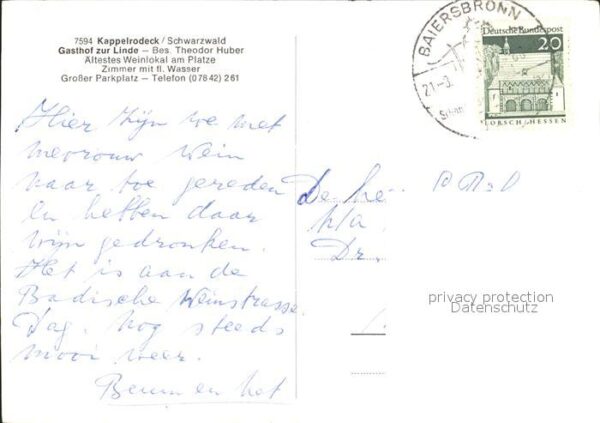 7594 Kappelrodeck / Schwarzwald
Gasthof zur Linde — Bes. Theodor Huber
Ältestes Weinlokal am Platze
Zimmer mit fl. Wasser
Großer Parkplatz — Telefon (07842) 261
Hier zijn we met
mevrouw Wein
naar toe gereden
En hebben daar
wijn gedronken.
Het is aan de
Badische Weinstrasse.
Dag. Nog steeds
mooi weer.
en het
BAIERSBRONN
21.-9.
Deutsche Bundespost
20
LORSCH/HESSEN
De he
p/a
Dr.
privacy protection
Datenschutz